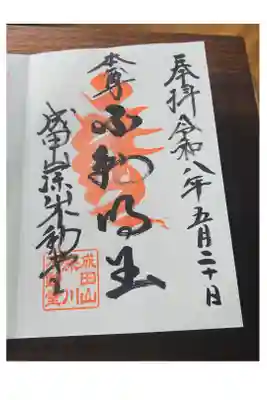 奉拝 令和八年五月二十日
本尊 不動明王
成田山深川不動堂
成田山
深川
不動堂